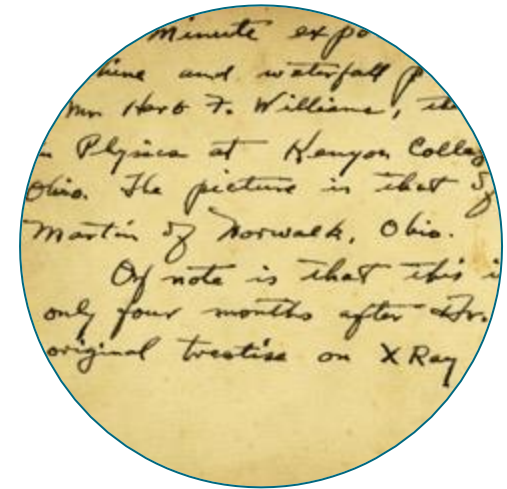 minute expo
and waterfall p
Mr Herb F. Williams, the
Physics at Kenyon Colleg
Ohio. The picture is that of
Martin of Norwalk, Ohio.
Of note is that this i
only four months after Dr.
original treatise on X Ray